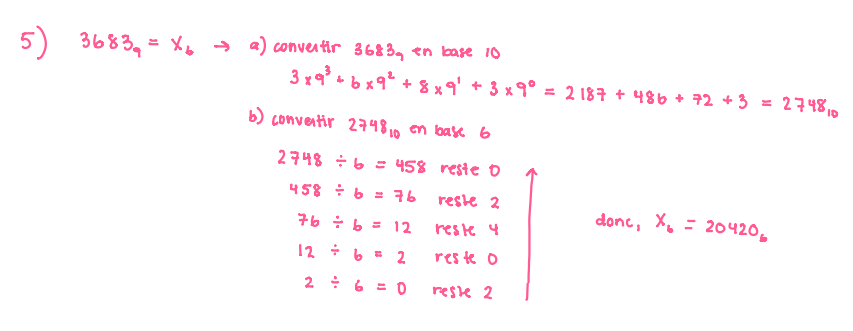 5) 3683₉ = X₆ → a) convertir 3683₉ en base 10
3 x 9³ + 6 x 9² + 8 x 9¹ + 3 x 9⁰ = 2187 + 486 + 72 + 3 = 2748₁₀
b) convertir 2748₁₀ en base 6
2748 ÷ 6 = 458 reste 0
458 ÷ 6 = 76 reste 2
76 ÷ 6 = 12 reste 4
donc, X₆ = 20420₆
12 ÷ 6 = 2 reste 0
2 ÷ 6 = 0 reste 2